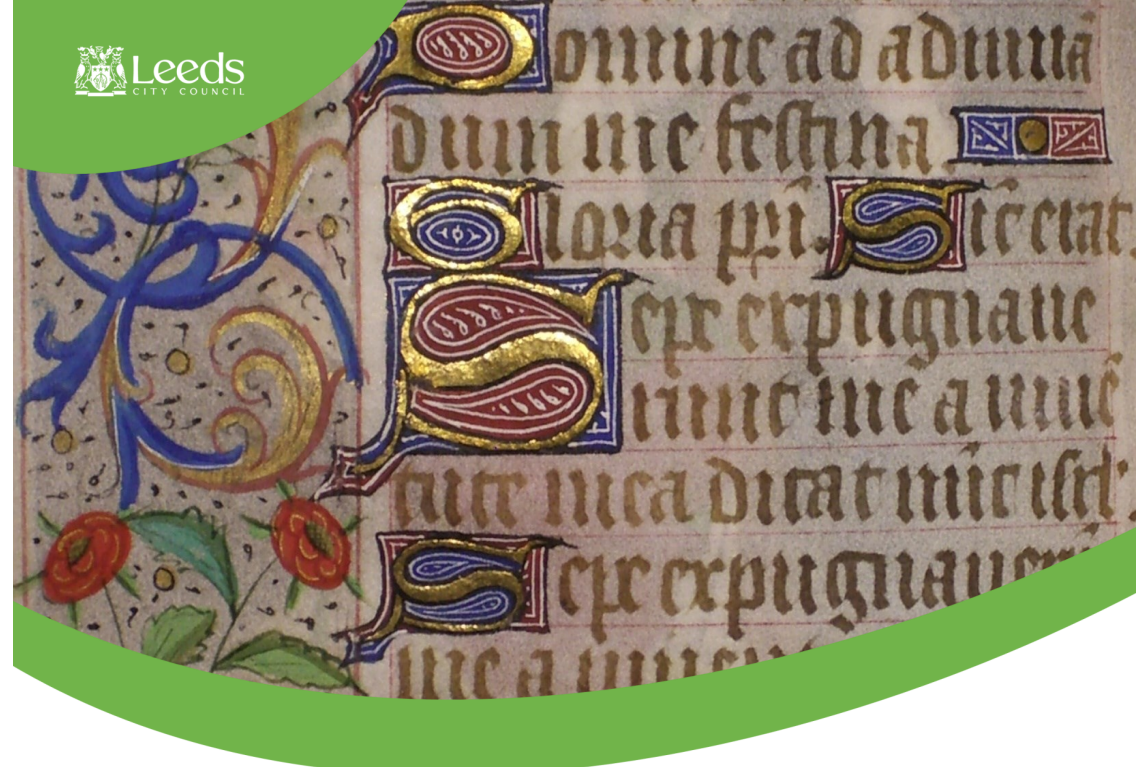 Leeds
CITY COUNCIL
Domine ad adiuuā
dum me festina
Gloria p̄ri. Sic̄ erat.
Sepe expugnaue
runt me a iuuē
tute mea dicat nūc isrl̄.
Sepe expugnauer
me a iuuen